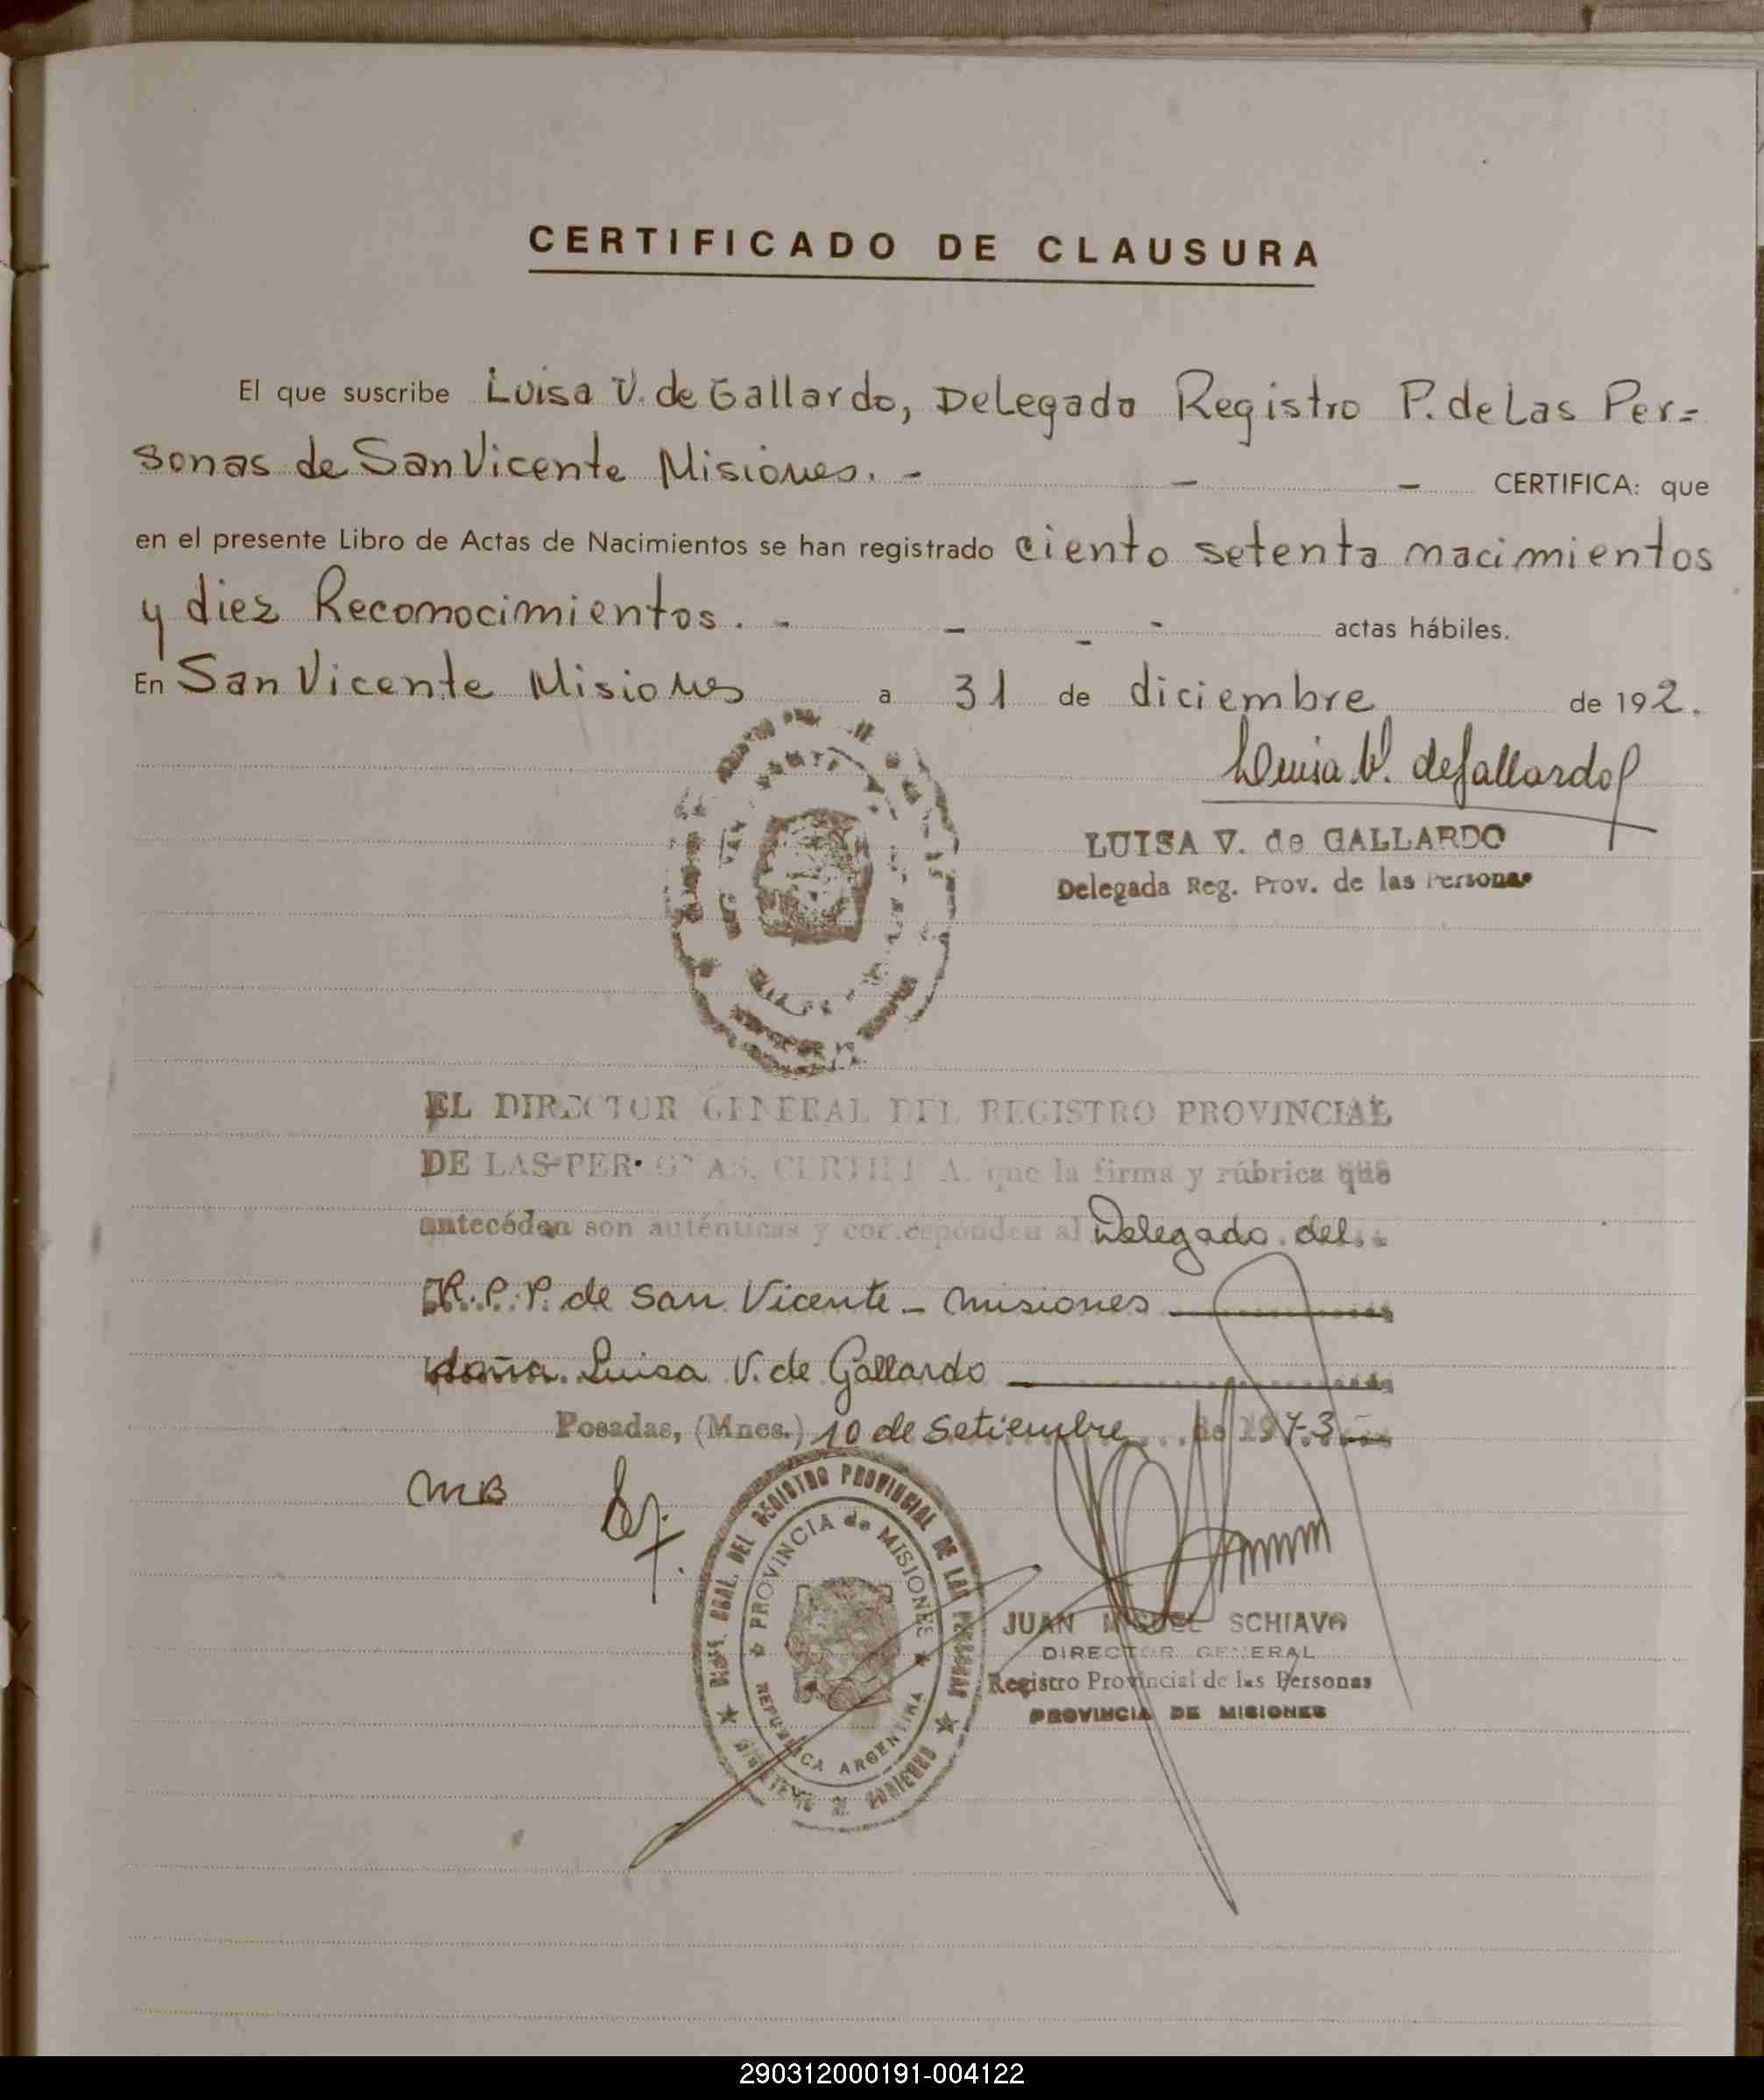 CERTIFICADO DE CLAUSURA
El que suscribe Luisa V. de Gallardo, Delegado Registro P. de Las Per=
sonas de San Vicente Misiones. - - - CERTIFICA: que
en el presente Libro de Actas de Nacimientos se han registrado ciento setenta nacimientos
y diez Reconocimientos. - - - - actas hábiles.
En San Vicente Misiones a 31 de diciembre de 192.
Luisa V. de Gallardo
LUISA V. de GALLARDO
Delegada Reg. Prov. de las Personas
EL DIRECTOR GENERAL DEL REGISTRO PROVINCIAL
DE LAS PERSONAS, CERTIFICA que la firma y rúbrica que
anteceden son auténticas y corresponden al Delegado del
R.P.P. de San Vicente - Misiones
doña Luisa V. de Gallardo
Posadas, (Mnes.) 10 de Setiembre de 1973
MB
DIRECC. GRAL. DEL REGISTRO PROVINCIAL DE LAS PERSONAS
PROVINCIA de MISIONES
REPUBLICA ARGENTINA
MINISTERIO DE GOBIERNO
JUAN MIGUEL SCHIAVO
DIRECTOR GENERAL
Registro Provincial de las Personas
PROVINCIA DE MISIONES
290312000191-004122